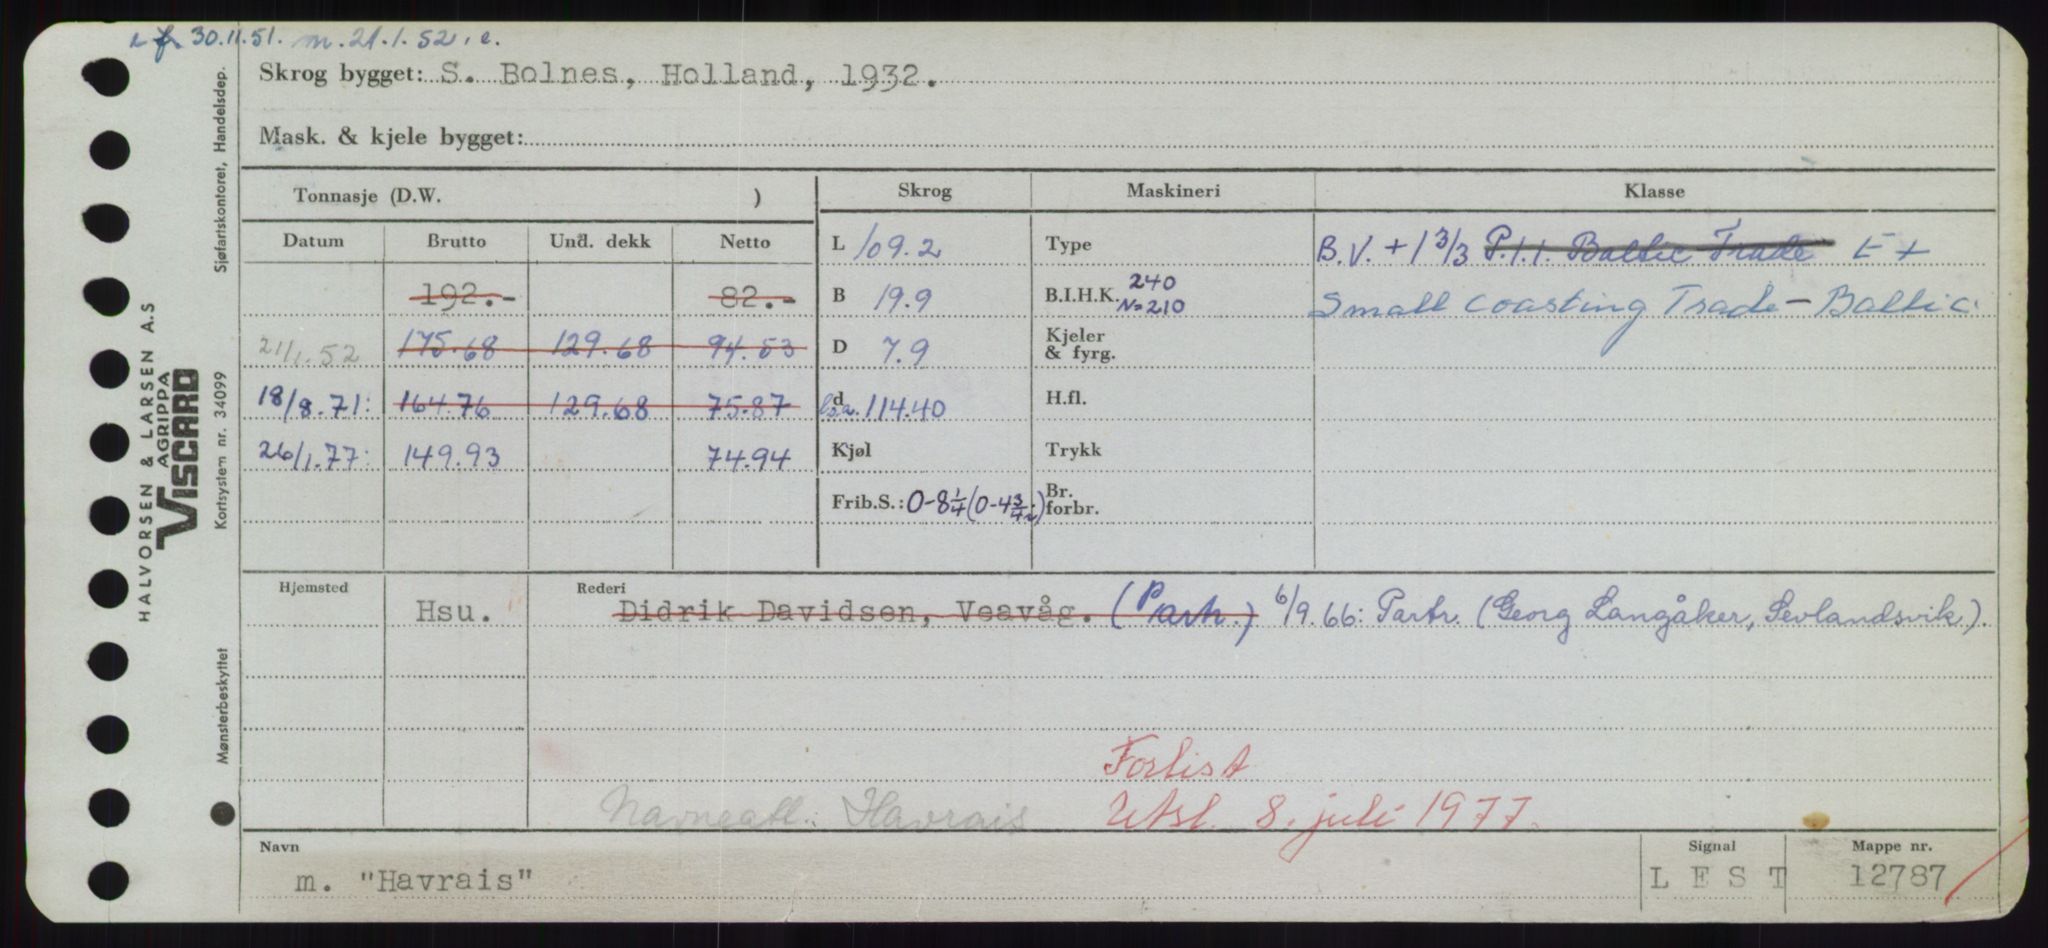 fr 30.11.51. m. 21.1.52. e.
Skrog bygget: S. Bolnes, Holland, 1932.
Mask. & kjele bygget:
Tonnasje (D.W. )
Skrog Maskineri Klasse
Datum Brutto Und. dekk Netto
192.- 82.-
21/1.52 175.68 129.68 94.53
18/8.71: 164.76 129.68 75.87
26/1.77: 149.93 74.94
L 109.2
B 19.9
D 7.9
d l.o.a. 114.40
Kjøl
Frib.S.: 0-8 1/4 (0-4 3/4)
Type
B.I.H.K. 240
N=210
Kjeler
& fyrg.
H.fl.
Trykk
Br.
forbr.
B.V. + 1 3/3 P.1.1. Baltic Trade E +
Small coasting Trade - Baltic.
Hjemsted Rederi
Hsu. Didrik Davidsen, Veavåg. (Partr.) 6/9.66: Partr. (Georg Langåker, Sevlandsvik).
Forlist
Navneatt.: Havrais Utsl. 8. juli 1977.
Navn Signal Mappe nr.
m. "Havrais" L E S T 12787
HALVORSEN & LARSEN A.S
AGRIPPA
VISCARD
Sjøfartskontoret, Handelsdep.
Kortsystem nr. 34099
Mønsterbeskyttet